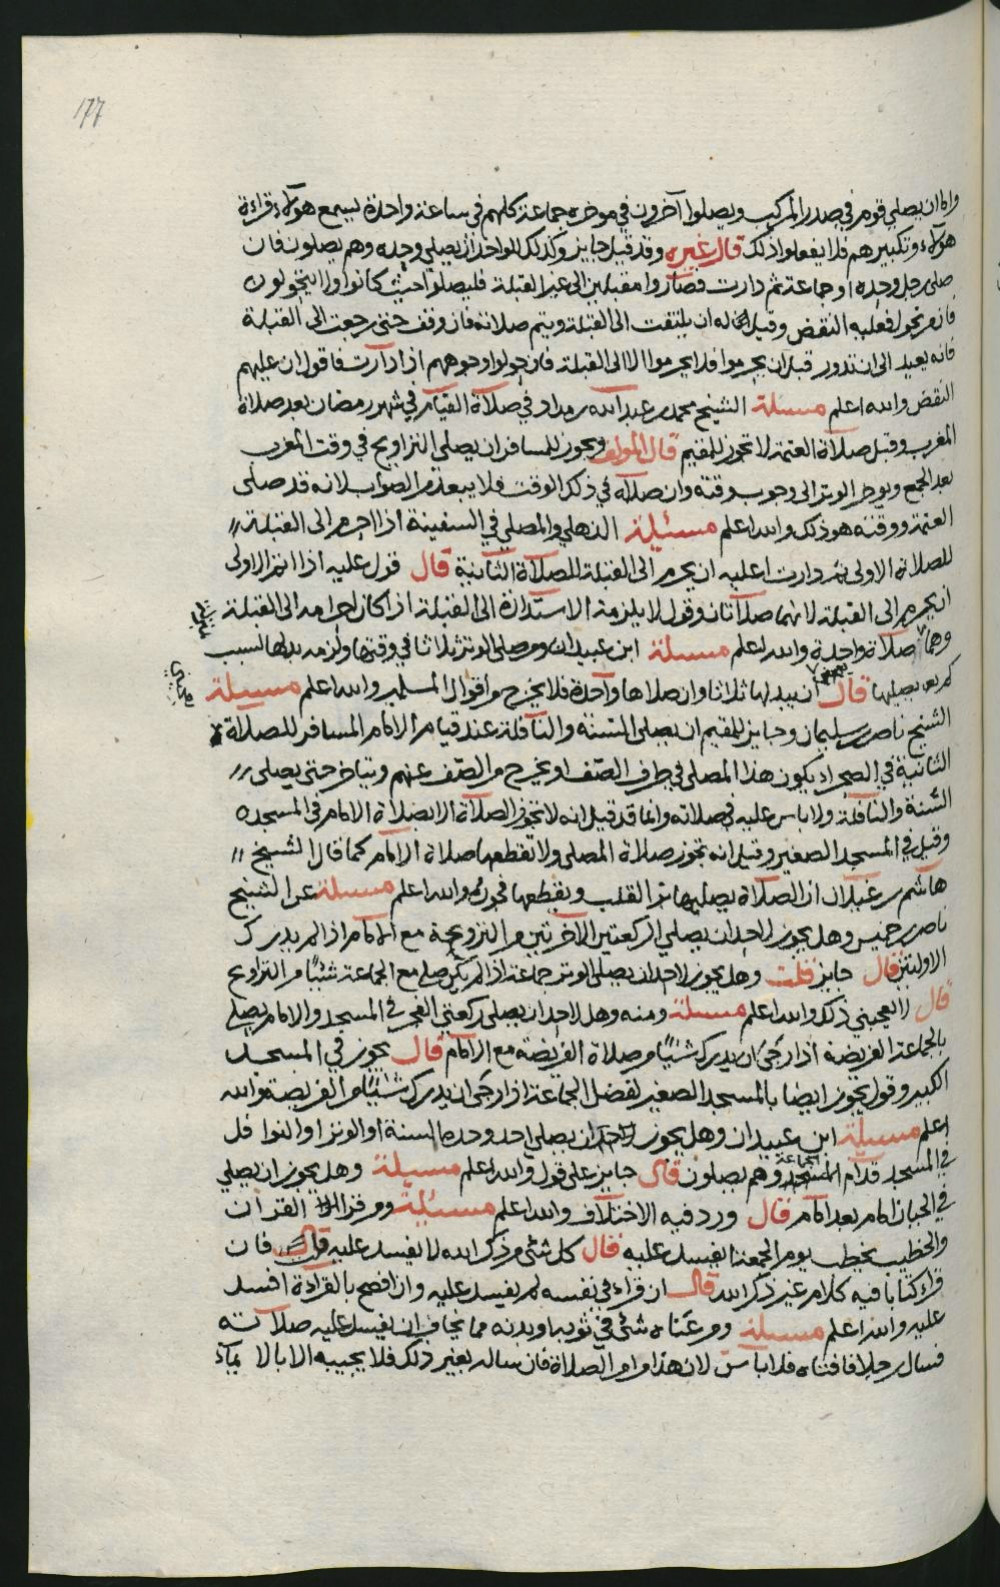 177
واما ان يصلي قوم في صدر المركب ويصلوا آخرون في موخره جماعة كلهم في ساعة واحدة يسمع هولاء قراءة
هولاء وتكبيرهم فلا يفعلوا ذلك قال غيره وقد قيل جايز وكذلك الواحد ان يصلي وحده وهم يصلون فان
صلى رجل وحده او جماعة ثم دارت فصاروا مقبلين الى غير القبلة فليصلوا حيث كانوا ولا يتحولون
فان تحول فعليه النقض وقيل له ان يلتفت الى القبلة ويتم صلاته فان وقف حتى رجعت الى القبلة
فانه يعيد الى ان تدور قبل ان يحرموا فلا يحرموا الا الى القبلة فان حولوا وجوههم اذا دارت فاقول ان عليهم
النقض والله اعلم مسئلة الشيخ محمد بن عبدالله بن مداد في صلاة القيام في شهر رمضان بعد صلاة
المغرب وقبل صلاة العتمة لا تجوز للمقيم قال المولف ويجوز للمسافر ان يصلي التراويح في وقت المغرب
بعد الجمع ويوخر الوتر الى وجوب وقته وان صلاه في ذلك الوقت فلا يبعد من الصواب لانه قد صلى
العتمة ووقته هو ذلك والله اعلم مسئلة الذهلي والمصلي في السفينة اذا احرم الى القبلة
للصلاة الاولى ثم دارت اعليه ان يحرم الى القبلة للصلاة الثانية قال قول عليه اذا اتم الاولى
ان يحرم الى القبلة لانهما صلاتان وقول لا يلزمه الاستدارة الى القبلة اذا كان احرامه الى القبلة
وهما صلاة واحدة والله اعلم مسئلة ابن عبيدان ومن صلى الوتر ثلاثا في وقتها ولزمه بدلها لسبب
كم بعد يصليها قال ان يبدلها ثلاثا وان صلاها واحدة فلا يخرج من اقوال المسلمين والله اعلم مسئلة
الشيخ ناصر بن سليمان وجايز للمقيم ان يصلي السنة والنافلة عند قيام الامام المسافر للصلاة
الثانية في الصحراء ويكون هذا المصلي في طرف الصف او يخرج من الصف عنهم ويتاخر حتى يصلي
السنة والنافلة ولا باس عليه في صلاته وانما قد قيل انه لا تجوز الصلاة الا بصلاة الامام في المسجد
وقيل في المسجد الصغير وقيل انه تجوز صلاة المصلي ولا تقطعها صلاة الامام كما قال الشيخ
هاشم بن غيلان ان الصلاة يصليها بر القلب ويقطعها فجوره والله اعلم مسئلة عن الشيخ
ناصر بن خميس وهل يجوز لاحد ان يصلي الركعتين الآخرتين من الترويحة مع الامام اذا لم يدرك
الاولتين قال جايز قلت وهل يجوز لاحد ان يصلي الوتر جماعة اذا لم يكن صلى مع الجماعة شيئا من التراويح
قال لا يعجبني ذلك والله اعلم مسئلة ومنه وهل لاحد ان يصلي ركعتي الفجر في المسجد والامام يصلي
بالجماعة الفريضة اذا رجى ان يدرك شيئا من صلاة الفريضة مع الامام قال يجوز في المسجد
الكبير وقول يجوز ايضا بالمسجد الصغير لفضل الجماعة اذا رجى ان يدرك شيئا من الفريضة والله
اعلم مسئلة ابن عبيدان وهل يجوز لاحد ان يصلي احد وحده السنة او الوتر او النوافل
في المسجد قدام الجماعة وهم يصلون قال جايز على قول والله اعلم مسئلة وهل يجوز ان يصلي
في الجبان امام بعد امام قال ورد فيه الاختلاف والله اعلم مسئلة ومن قرا القرآن
والخطيب يخطب يوم الجمعة ايفسد عليه قال كل شي من ذكر الله لا يفسد عليه قلت فان
قراء كتابا فيه كلام غير ذكر الله قال ان قراء في نفسه لم يفسد عليه وان افصح بالقراءة افسد
عليه والله اعلم مسئلة ومن عناه شي في ثوبه او بدنه مما يخاف ان يفسد عليه صلاته
فسال رجلا فافتاه فلا باس لان هذا من امر الصلاة فان ساله بغير ذلك فلا يجيبه الا بالايماء